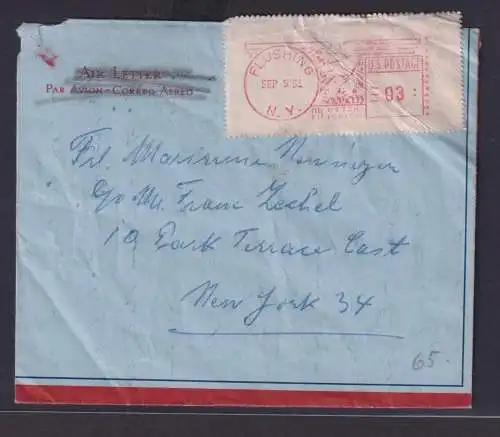 AIR LETTER
PAR AVION-CORREO AEREO
FLUSHING
SEP 5
N. Y.
U.S. POSTAGE
03
Frl. Marianne
c/o Mr. Franz Zechel
10 Park Terrace East
New York 34
65.